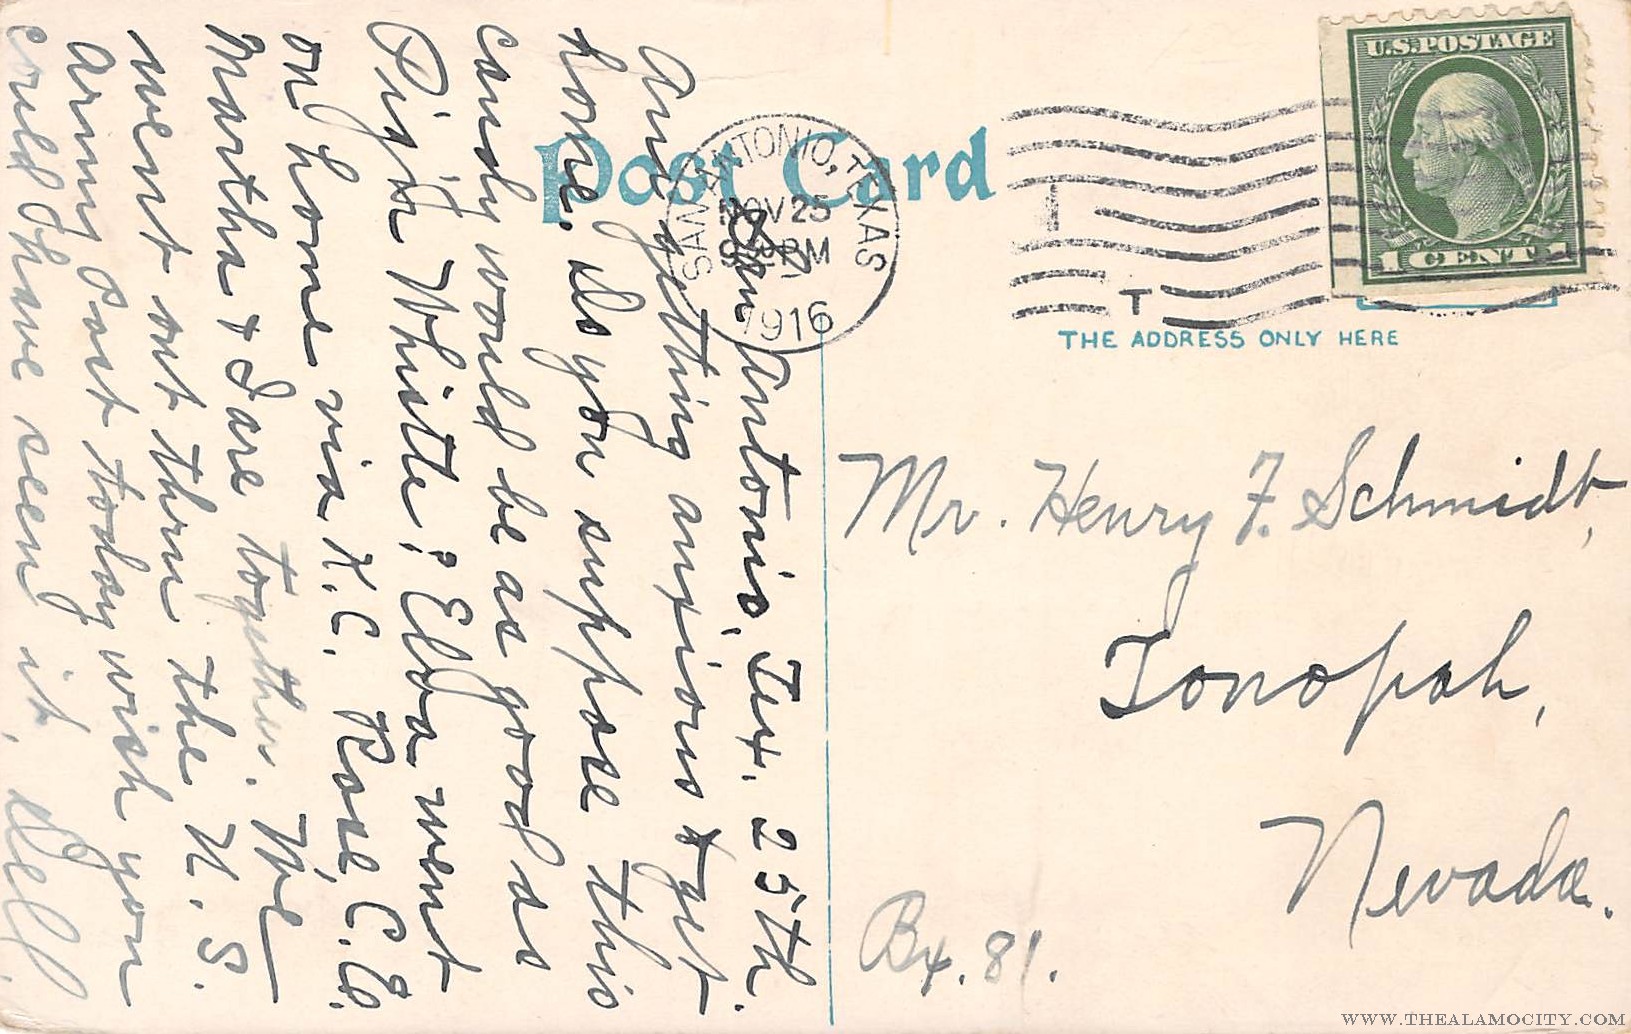 Post Card
THE ADDRESS ONLY HERE
U.S. POSTAGE
1 CENT 1
SAN ANTONIO, TEXAS
NOV 25
PM
1916
T
San Antonio, Tex. 25th.
Am getting anxious to get
home. Do you suppose this
candy would be as good as
Pig'n Whistle? Elva went
on home via K.C. Rose, C.E.
Martha & I are together. We
went out thru the U.S.
Army Post today wish you
could have seen it, Dell.
Mr. Henry F. Schmidt,
Tonopah,
Nevada.
Bx. 81.
WWW.THEALAMOCITY.COM